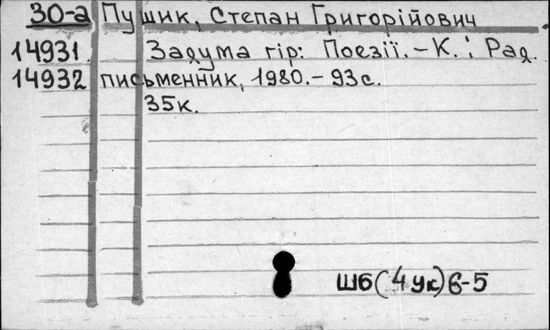 30-а Пушик, Степан Григорійович
14931. Задума гір: Поезії. - К.: Рад.
14932 письменник, 1980. - 93 с.
35к.
Шб(4Ук)6-5